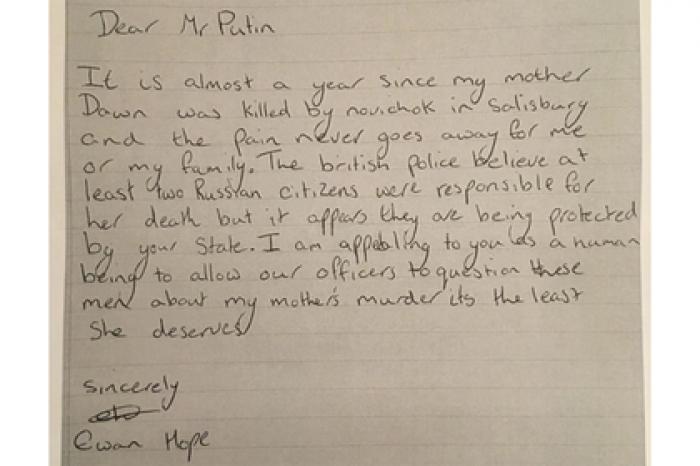 Dear Mr Putin
It is almost a year since my mother
Dawn was killed by novichok in Salisbury
and the pain never goes away for me
or my family. The british police believe at
least two Russian citizens were responsible for
her death but it appears they are being protected
by your State. I am appealing to you as a human
being to allow our officers to question these
men about my mother's murder its the least
She deserves
Sincerely
Ewan Hope